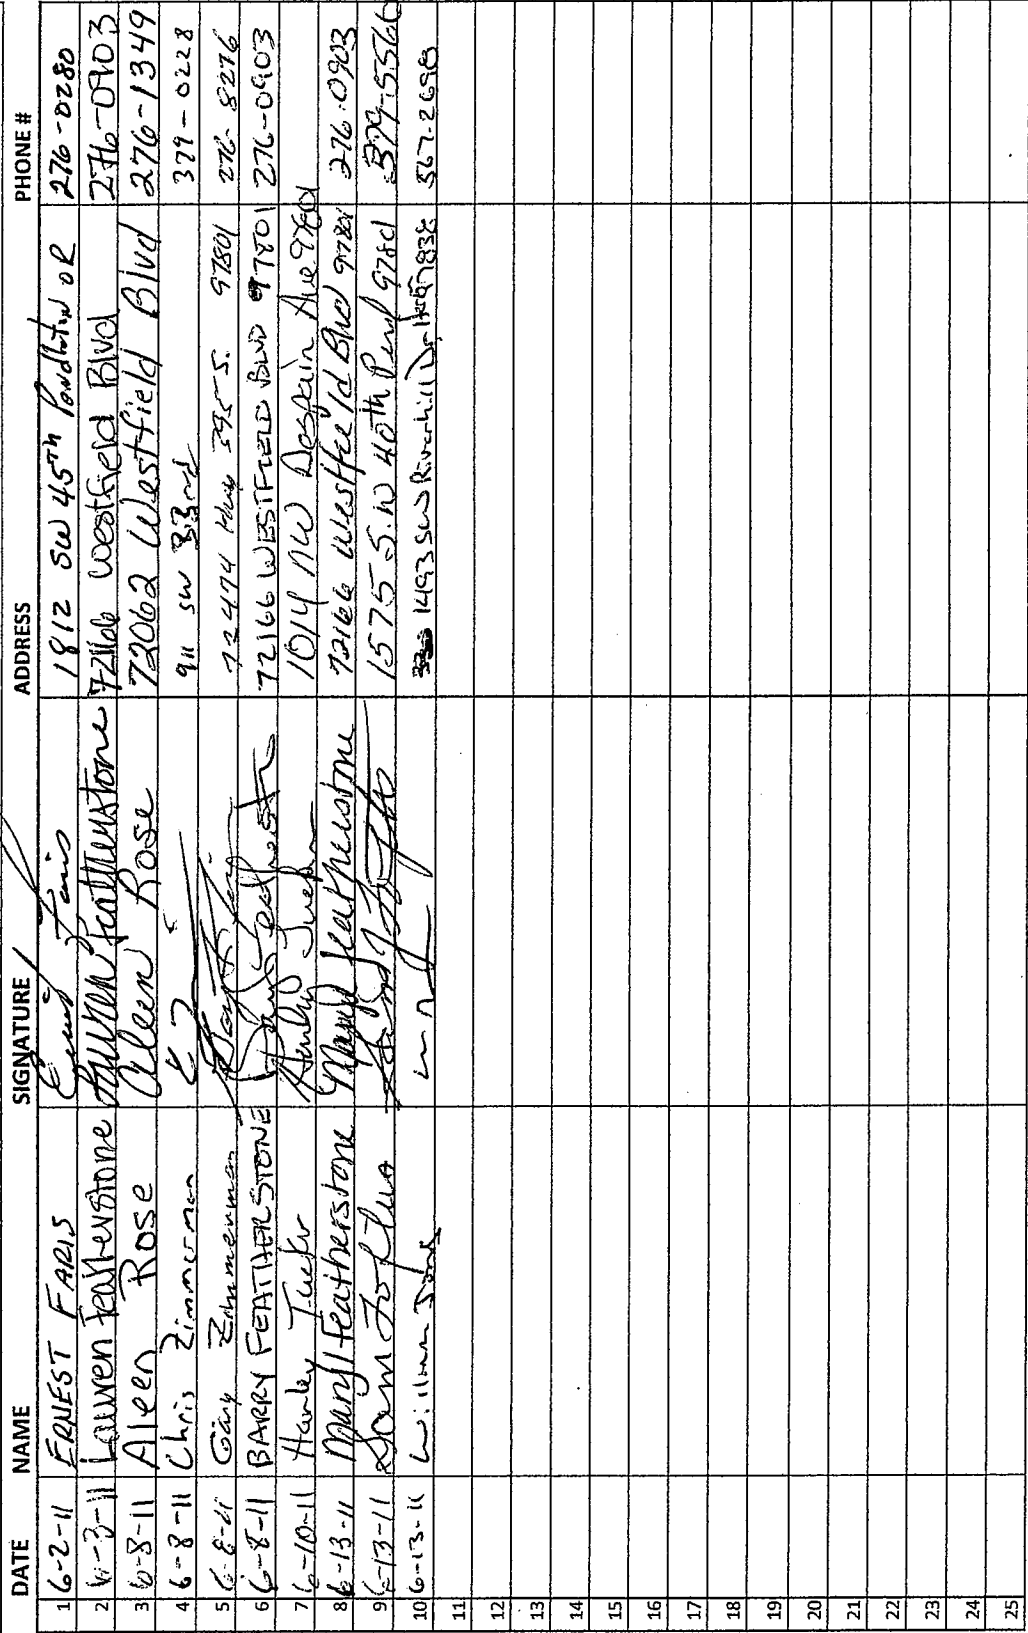 DATE NAME SIGNATURE ADDRESS PHONE #
1 6-2-11 ERNEST FARIS Ernest Faris 1812 SW 45th Pendleton OR 276-0280
2 6-3-11 Lauren Featherstone Lauren Featherstone 72166 Westfield Blvd 276-0903
3 6-8-11 Aleen Rose Aleen Rose 72062 Westfield Blvd 276-1349
4 6-8-11 Chris Zimmerman 911 SW 33rd 379-0228
5 6-8-11 Gary Zimmerman 72474 Hwy 395 S. 97801 276-8276
6 6-8-11 BARRY FEATHERSTONE 72166 WESTFIELD BLVD 97801 276-0903
7 6-10-11 Hanley Tucker 1014 NW Despain Ave 97801
8 6-13-11 Maryl Featherstone Maryl Featherstone 72166 Westfield Blvd 97801 276-0903
9 6-13-11 Sam 1575 S.W 40th Pend 97801 379-5560
10 6-13-11 William 1493 SW Riverhill Dr 97838 567-2698
11
12
13
14
15
16
17
18
19
20
21
22
23
24
25